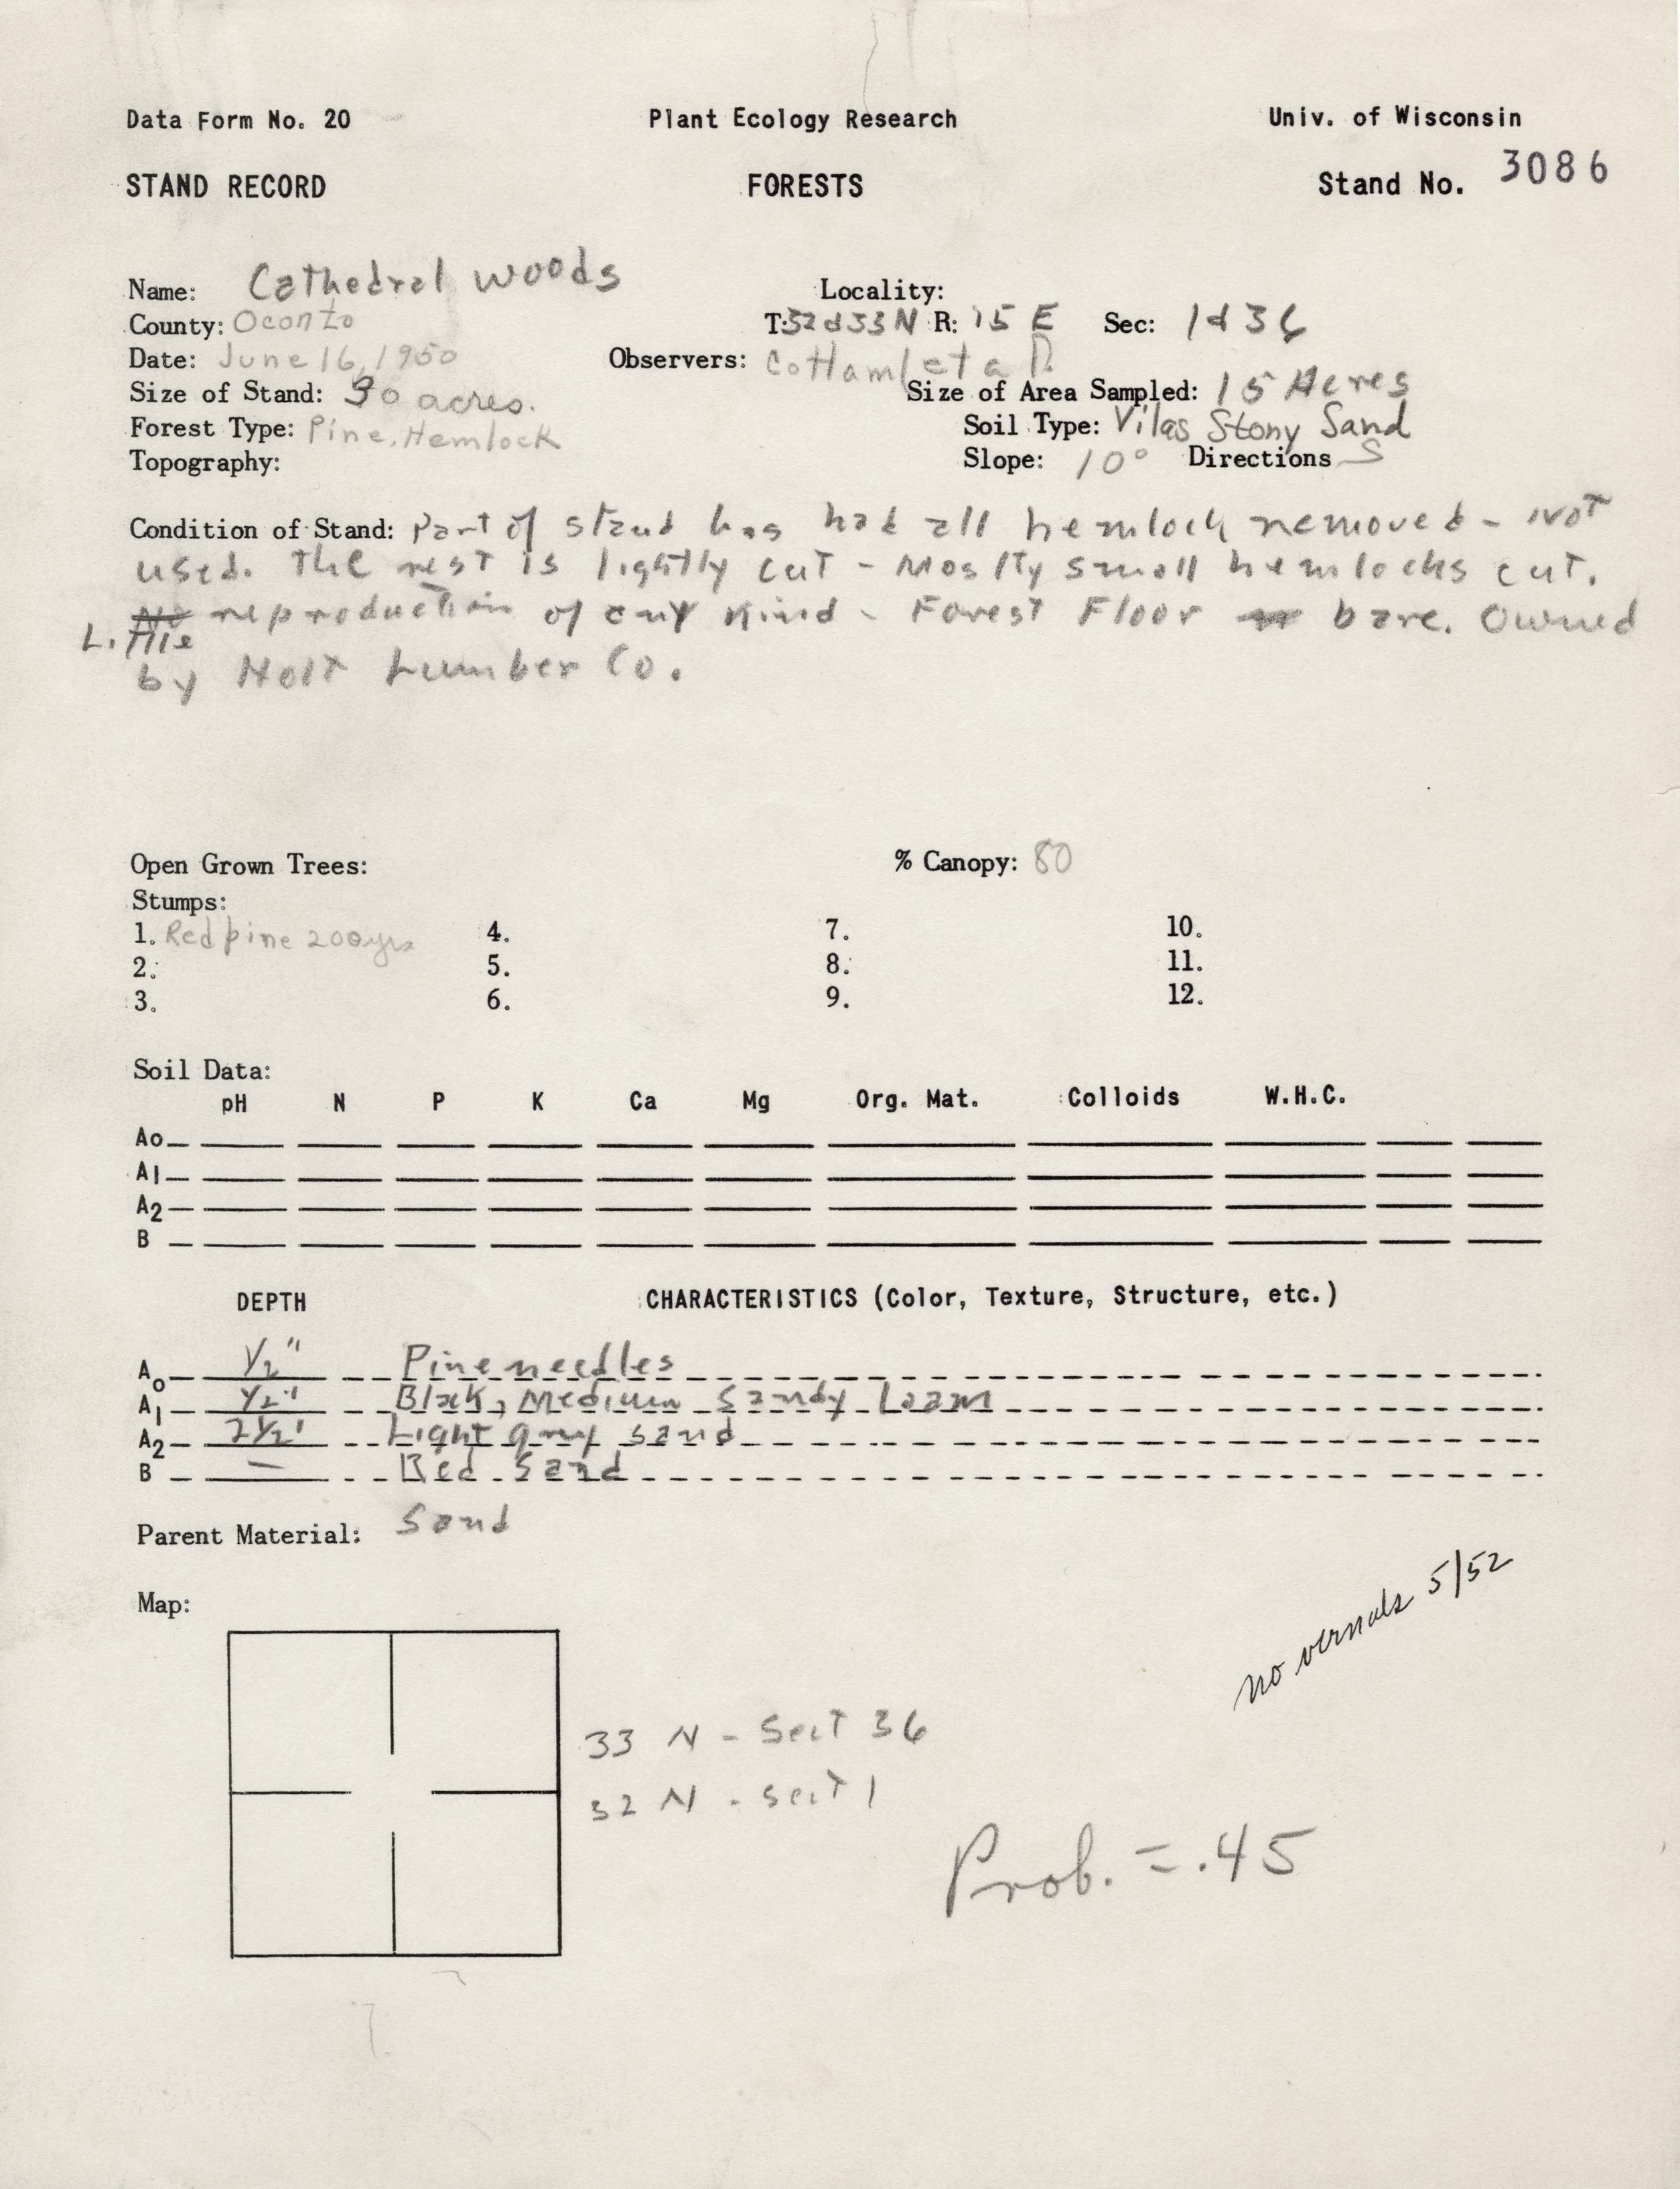 Data Form No. 20 Plant Ecology Research Univ. of Wisconsin
STAND RECORD FORESTS Stand No. 3086
Name: Cathedral woods Locality:
County: Oconto T:32&33N R: 15 E Sec: 1&36
Date: June 16, 1950 Observers: Cottam et al
Size of Stand: 30 acres. Size of Area Sampled: 15 Acres
Forest Type: Pine, Hemlock Soil Type: Vilas Stony Sand
Topography: Slope: 10° Directions S
Condition of Stand: Part of stand has had all hemlock removed - Not
used. The rest is lightly cut - Mostly small hemlocks cut.
No reproduction of any Kind - Forest Floor bare. Owned
Little
by Holt Lumber Co.
Open Grown Trees: % Canopy: 80
Stumps:
1. Red pine 200yrs 4. 7. 10.
2. 5. 8. 11.
3. 6. 9. 12.
Soil Data:
pH N P K Ca Mg Org. Mat. Colloids W.H.C.
Ao
A1
A2
B
DEPTH CHARACTERISTICS (Color, Texture, Structure, etc.)
Ao 1/2" Pine needles
A1 1/2" Black, Medium Sandy Loam
A2 2 1/2" Light gray sand
B — Red Sand
Parent Material: Sand
no vernals 5/52
Map:
33 N - Sect 36
32 N - sect 1
Prob. = .45